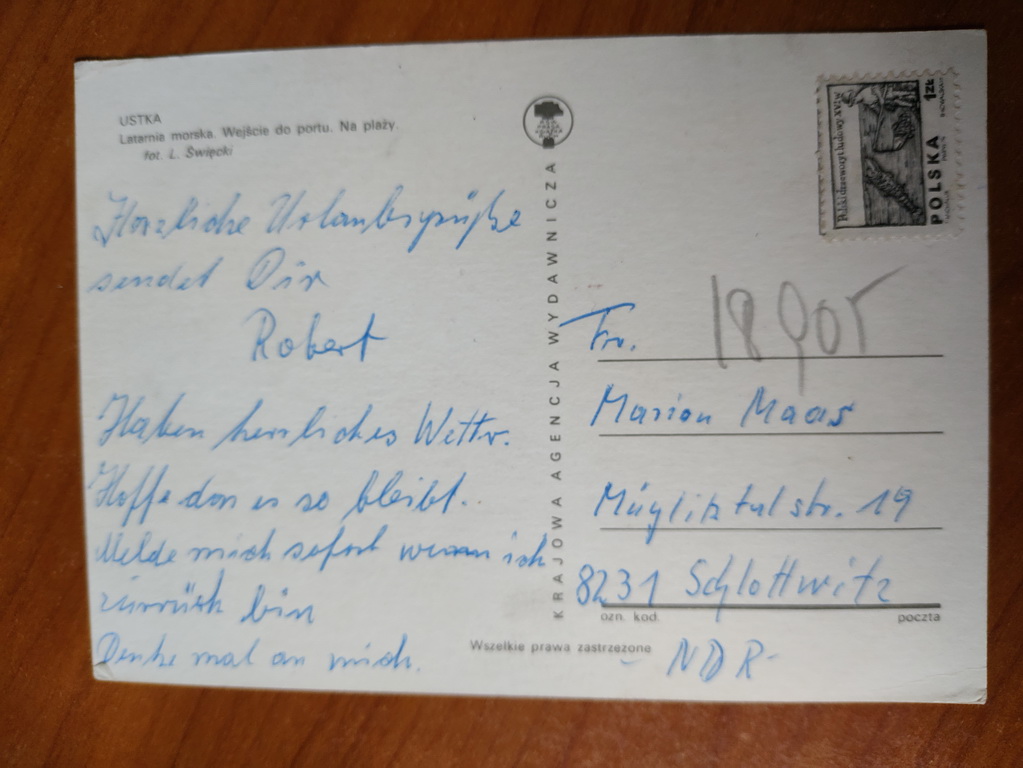 USTKA
Latarnia morska. Wejście do portu. Na plaży.
fot. L. Święcki
Herzliche Urlaubsgrüße
sendet Dir
Robert
Haben herrliches Wettr.
Hoffe das es so bleibt.
Melde mich sofort wenn ich
zurück bin
Denke mal an mich.
KRAJOWA AGENCJA WYDAWNICZA
Wszelkie prawa zastrzeżone
Polski drzeworyt ludowy XVI w.
POLSKA 1zł
Fr.
Marion Maas
Müglitztalstr. 19
8231 Schlottwitz
ozn. kod. poczta
- NDR -